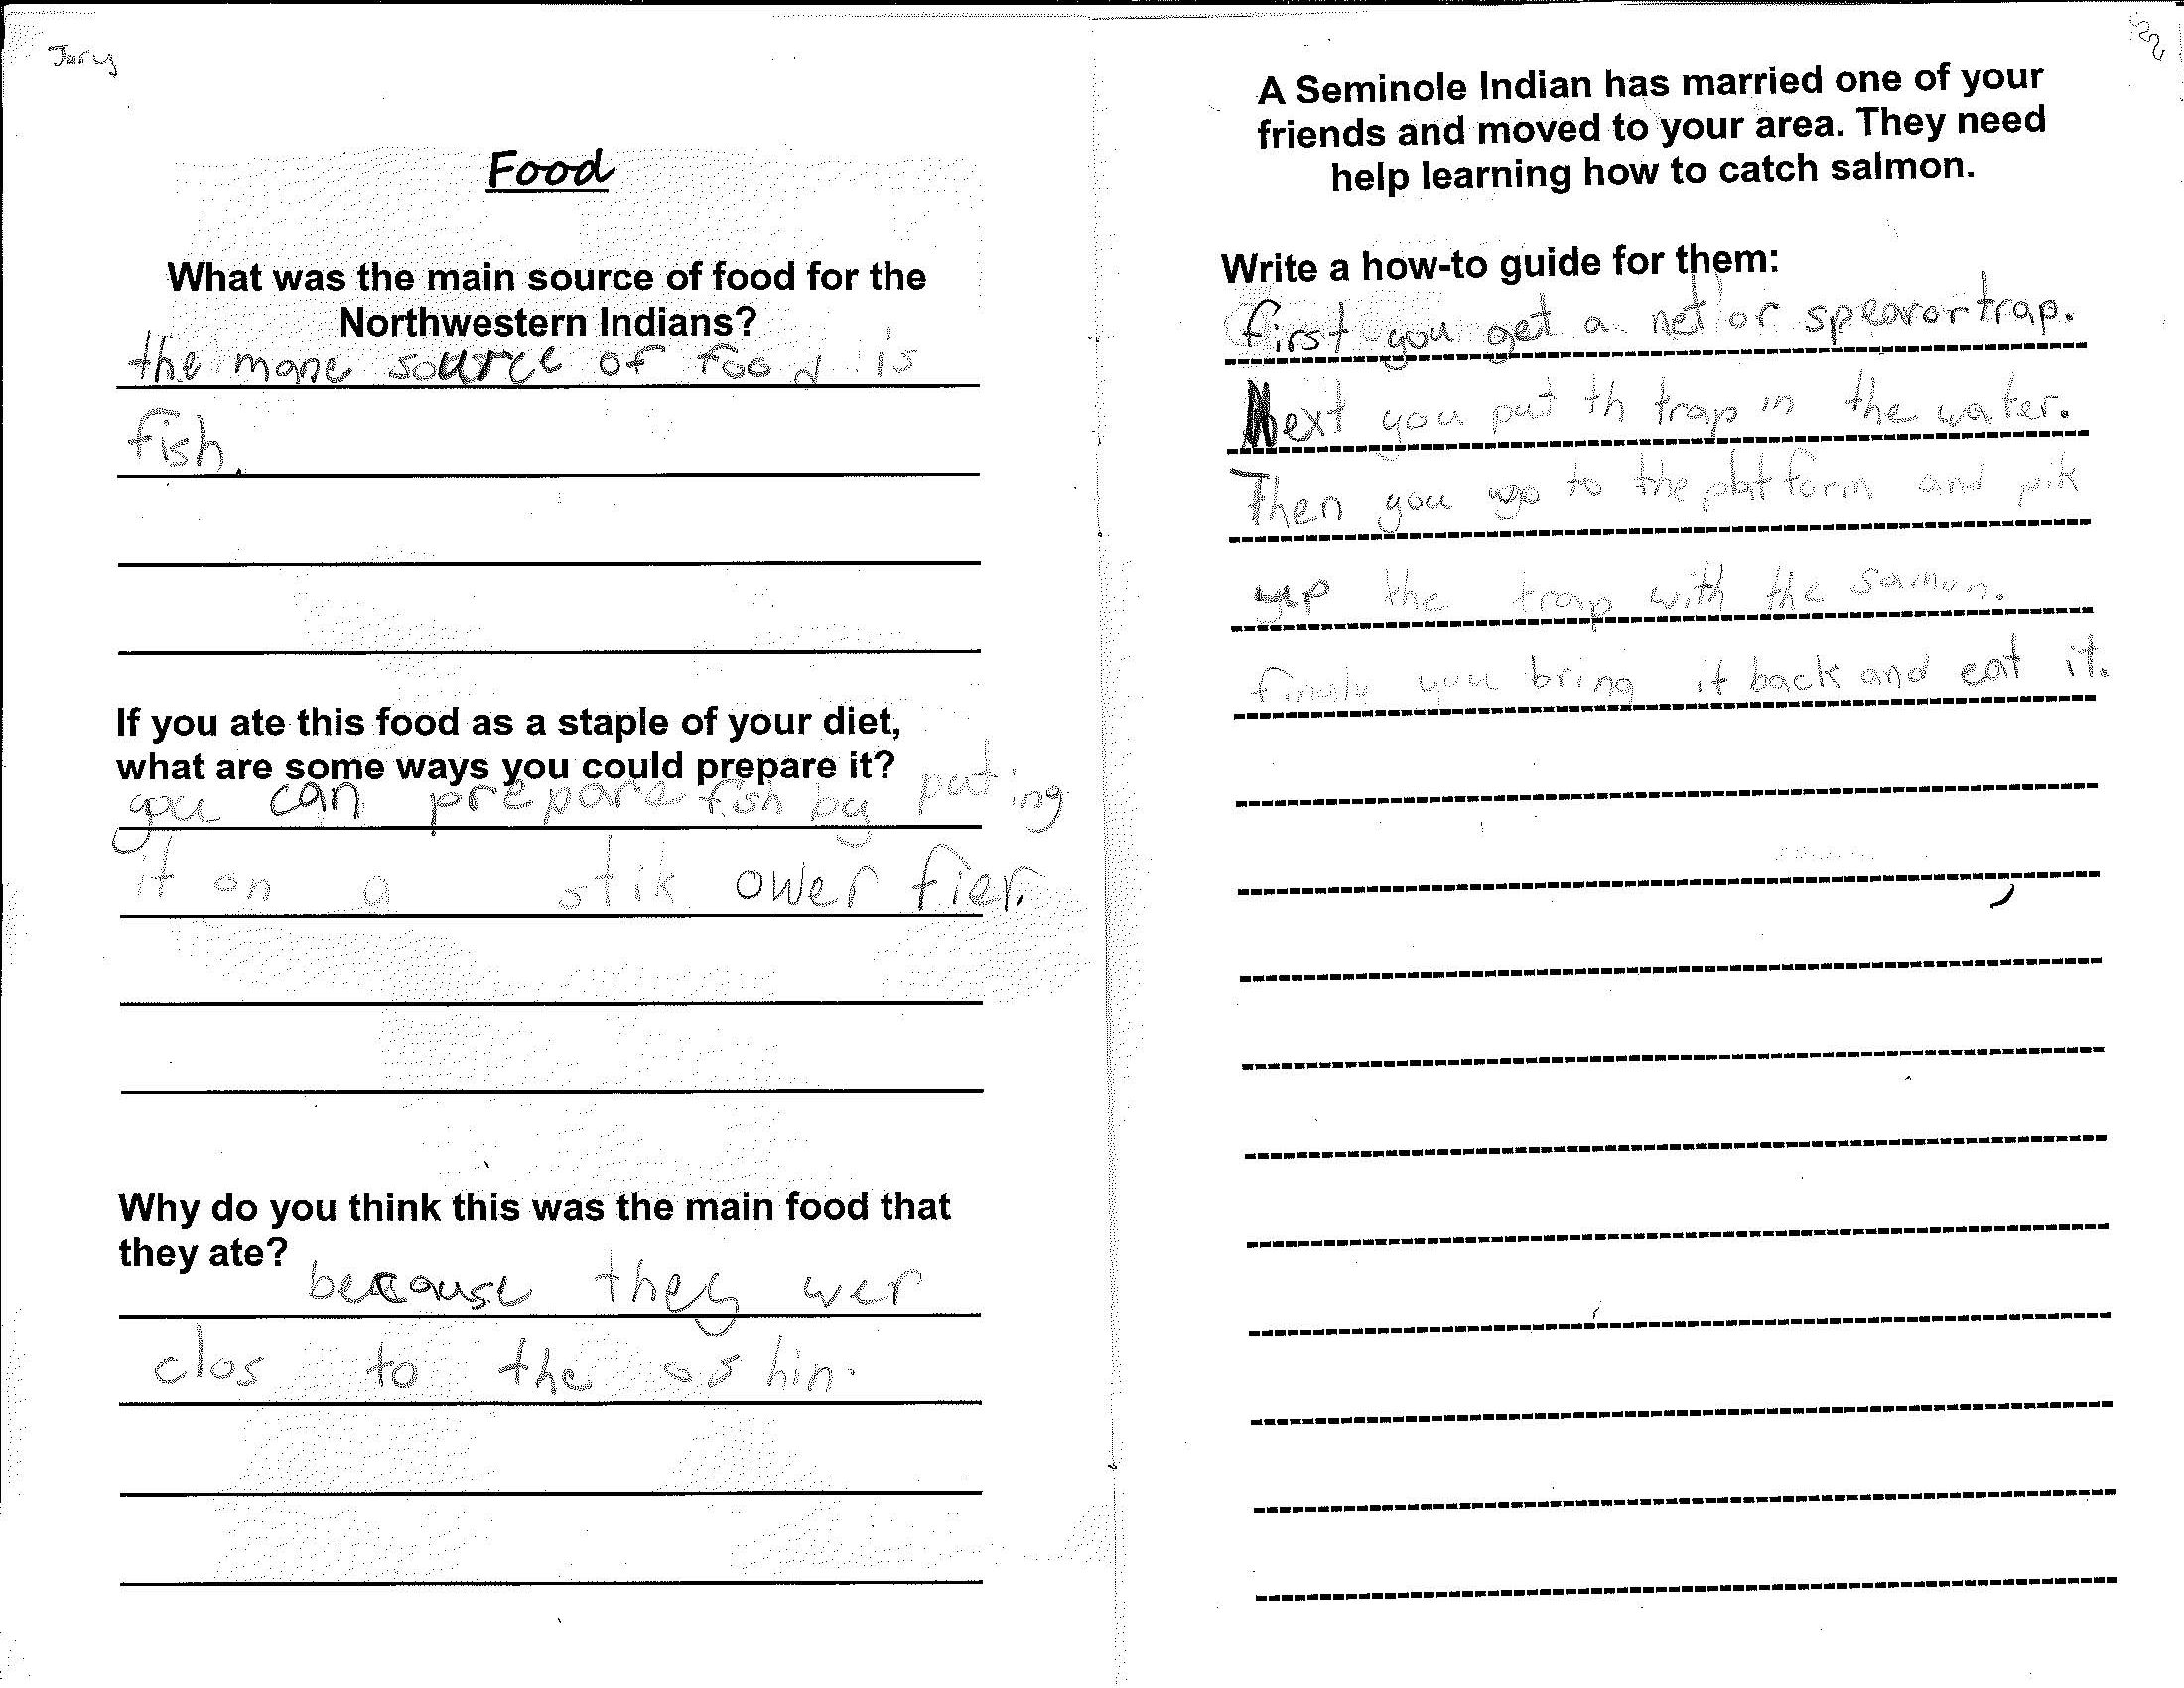 Food
What was the main source of food for the
Northwestern Indians?
the mane source of food is
fish.
If you ate this food as a staple of your diet,
what are some ways you could prepare it?
you can prepare fish by puting
it on a stik ower fier.
Why do you think this was the main food that
they ate?
because they wer
clos to the oshin.
22
A Seminole Indian has married one of your
friends and moved to your area. They need
help learning how to catch salmon.
Write a how-to guide for them:
first you get a net or spear or trap.
Next you put th trap in the water.
Then you go to the platform and pik
up the trap with the samon.
finaly you bring it back and eat it.